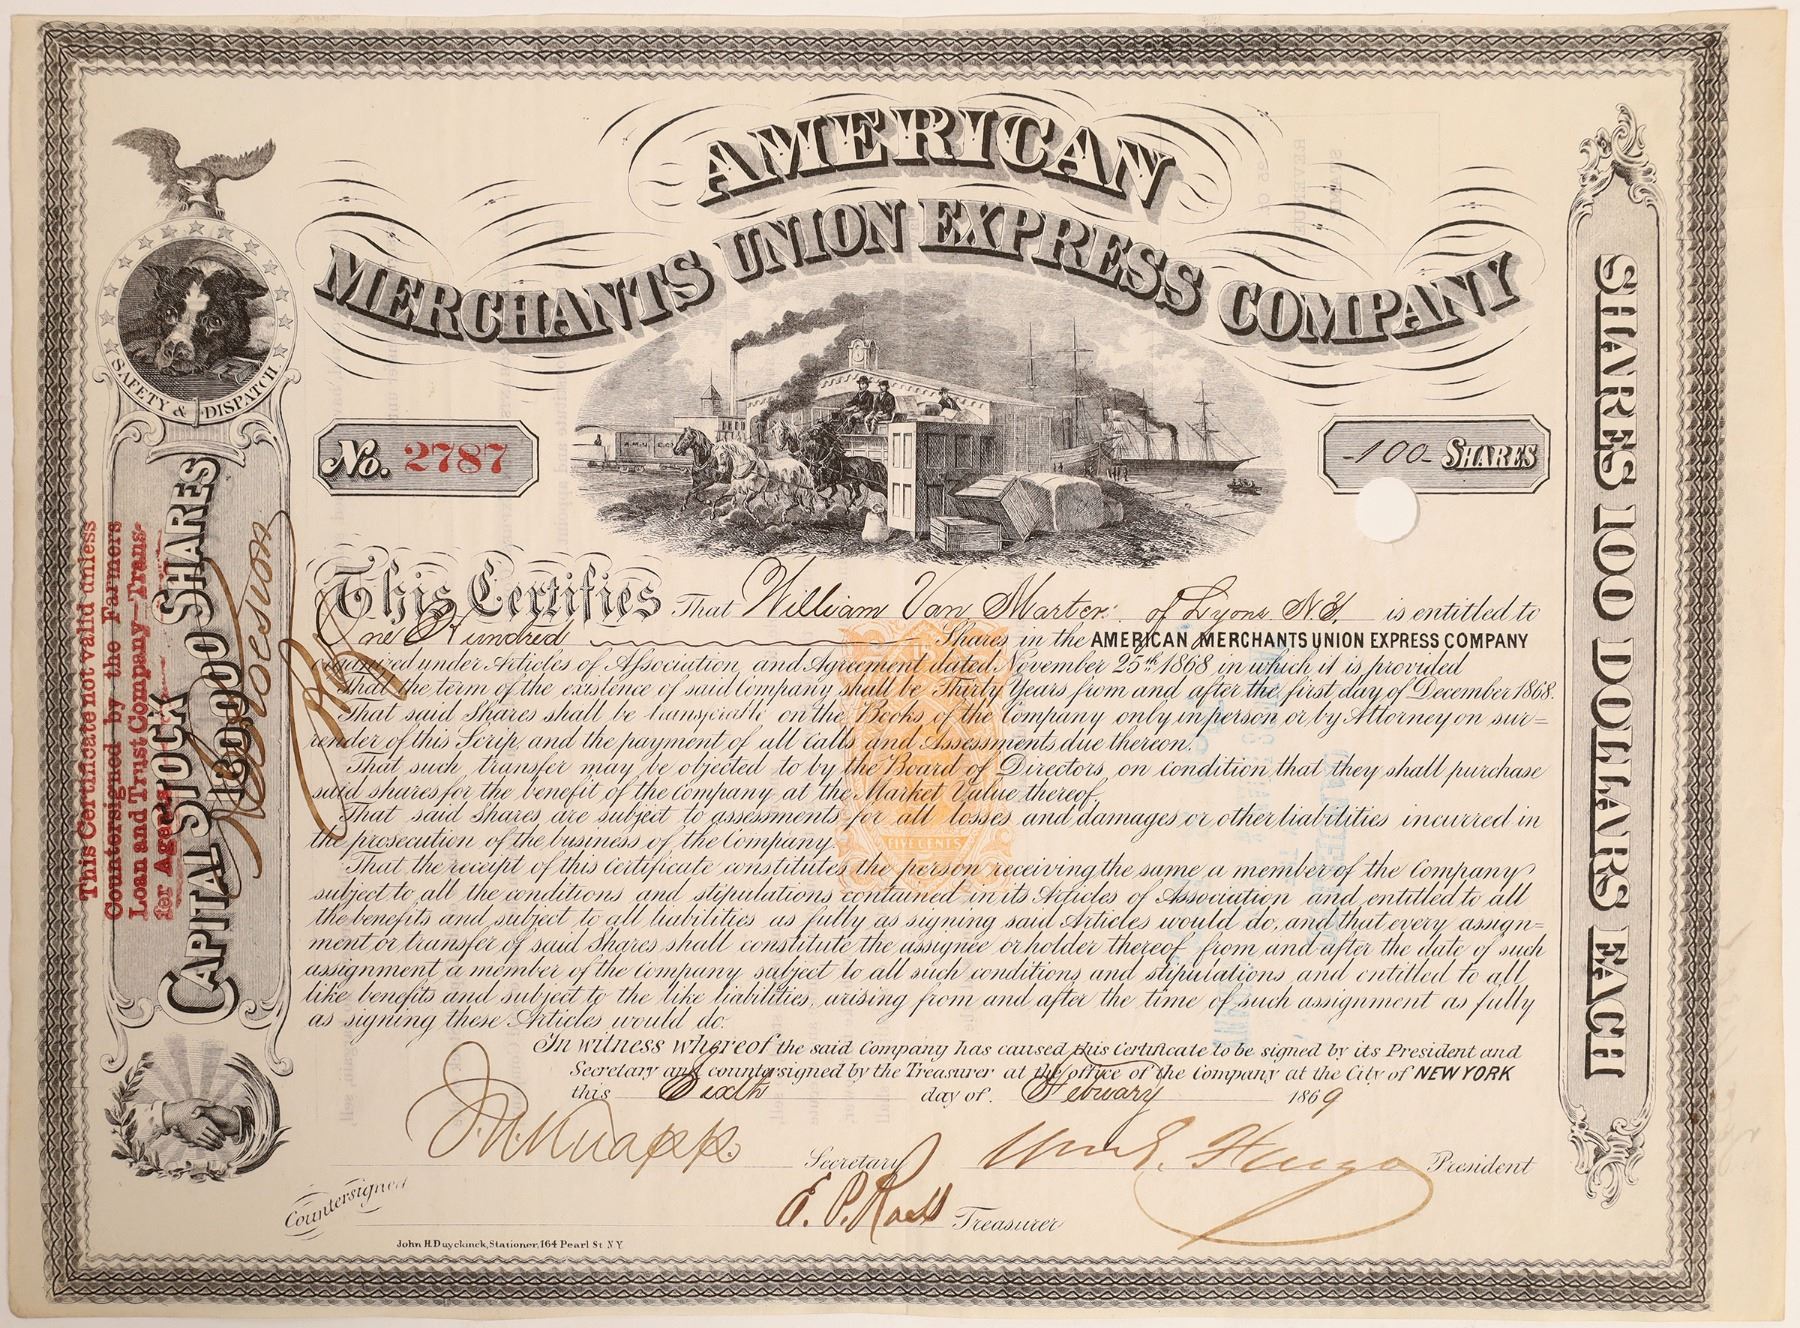 AMERICAN
MERCHANTS UNION EXPRESS COMPANY
SAFETY & DISPATCH
No. 2787
-100- SHARES
A.M.U.
CAPITAL STOCK
180000 SHARES
SHARES 100 DOLLARS EACH
This Certificate not valid unless
Countersigned by the Farmers
Loan and Trust Company—Trans-
fer Agents
This Certifies That William Van Marter of Lyons N.Y. is entitled to
One Hundred Shares in the AMERICAN MERCHANTS UNION EXPRESS COMPANY
organized under Articles of Association, and Agreement dated November 25th 1868 in which it is provided
That the term of the existence of said Company shall be Thirty Years from and after the first day of December 1868.
That said Shares shall be transferable on the Books of the Company only in person or by Attorney on sur=
render of this Scrip, and the payment of all Calls and Assessments due thereon.
That such transfer may be objected to by the Board of Directors, on condition that they shall purchase
said shares for the benefit of the Company at the Market Value thereof.
That said Shares, are subject to assessments for all losses and damages or other liabilities incurred in
the prosecution of the business of the Company.
FIVE CENTS
That the receipt of this Certificate constitutes the person receiving the same a member of the Company
subject to all the conditions and stipulations contained in its Articles of Association and entitled to all
the benefits and subject to all liabilities as fully as signing said Articles would do, and that every assign=
ment or transfer of said Shares shall constitute the assignee or holder thereof from and after the date of such
assignment a member of the Company subject to all such conditions and stipulations, and entitled to all
like benefits and subject to the like liabilities, arising from and after the time of such assignment as fully
as signing these Articles would do.
In witness whereof the said Company has caused this Certificate to be signed by its President and
Secretary and countersigned by the Treasurer at the office of the Company at the City of NEW YORK
this Sixth day of February 1869
J.N. Knapp Secretary Wm G. Fargo President
Countersigned E. P. Ross Treasurer
John H. Duyckinck, Stationer, 164 Pearl St. N.Y.